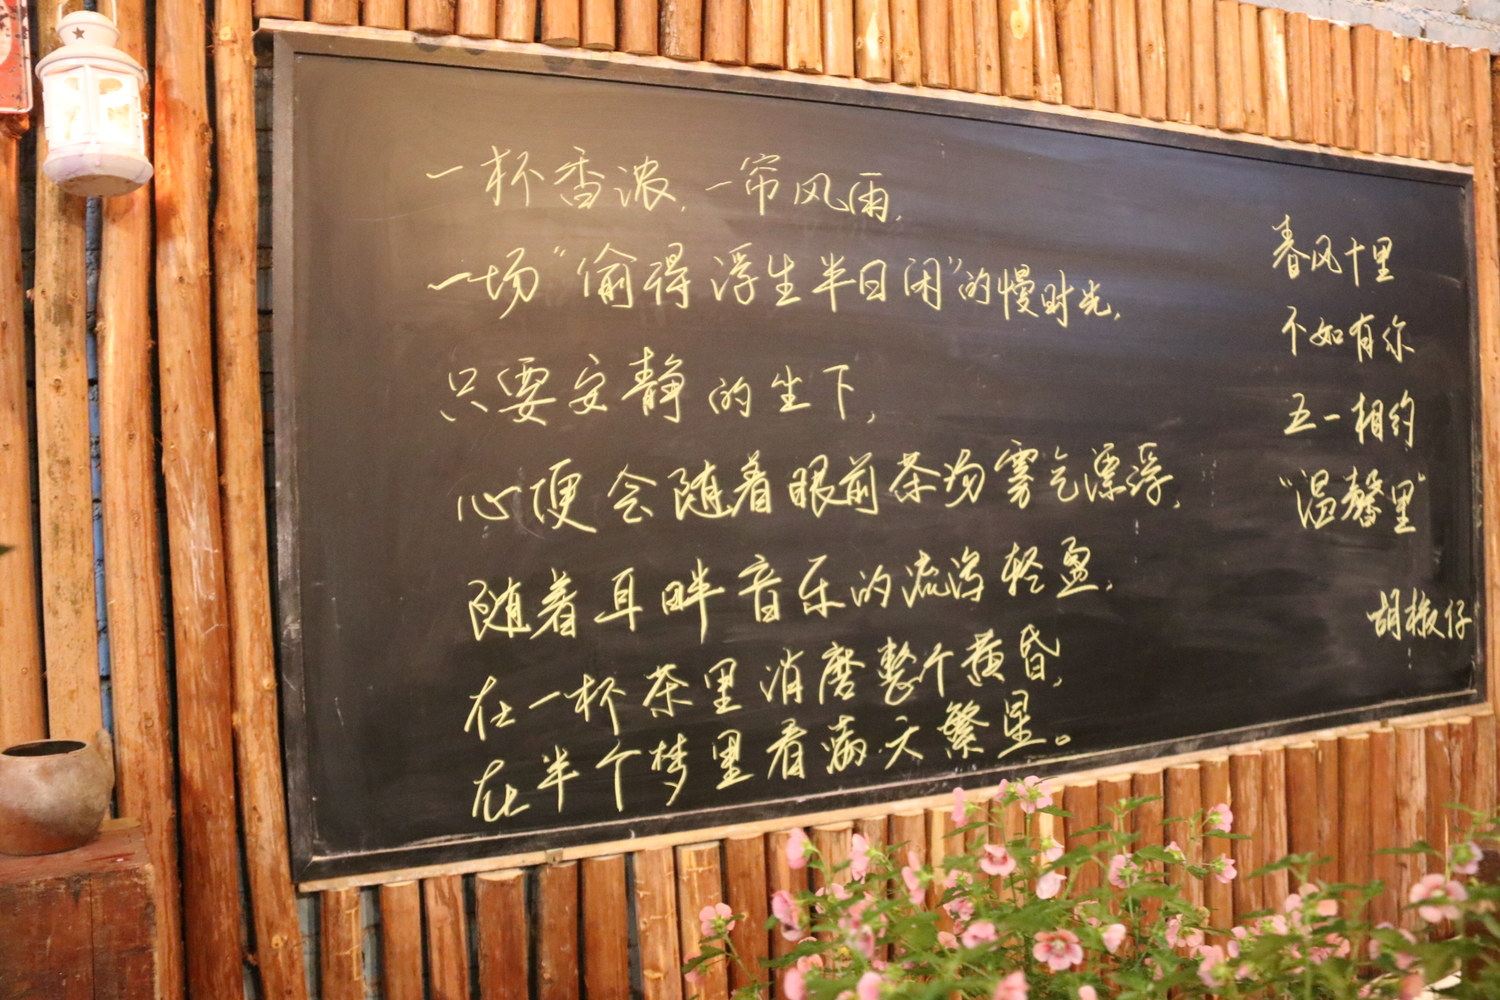 一杯香浓,一帘风雨,
一场“偷得浮生半日闲”的慢时光,
只要安静的坐下,
心便会随着眼前茶汤雾气漂浮,
随着耳畔音乐的流泻轻盈,
在一杯茶里消磨整个黄昏,
在半个梦里看满天繁星。
春风十里
不如有你
五一相约
“温馨里”
胡椒仔